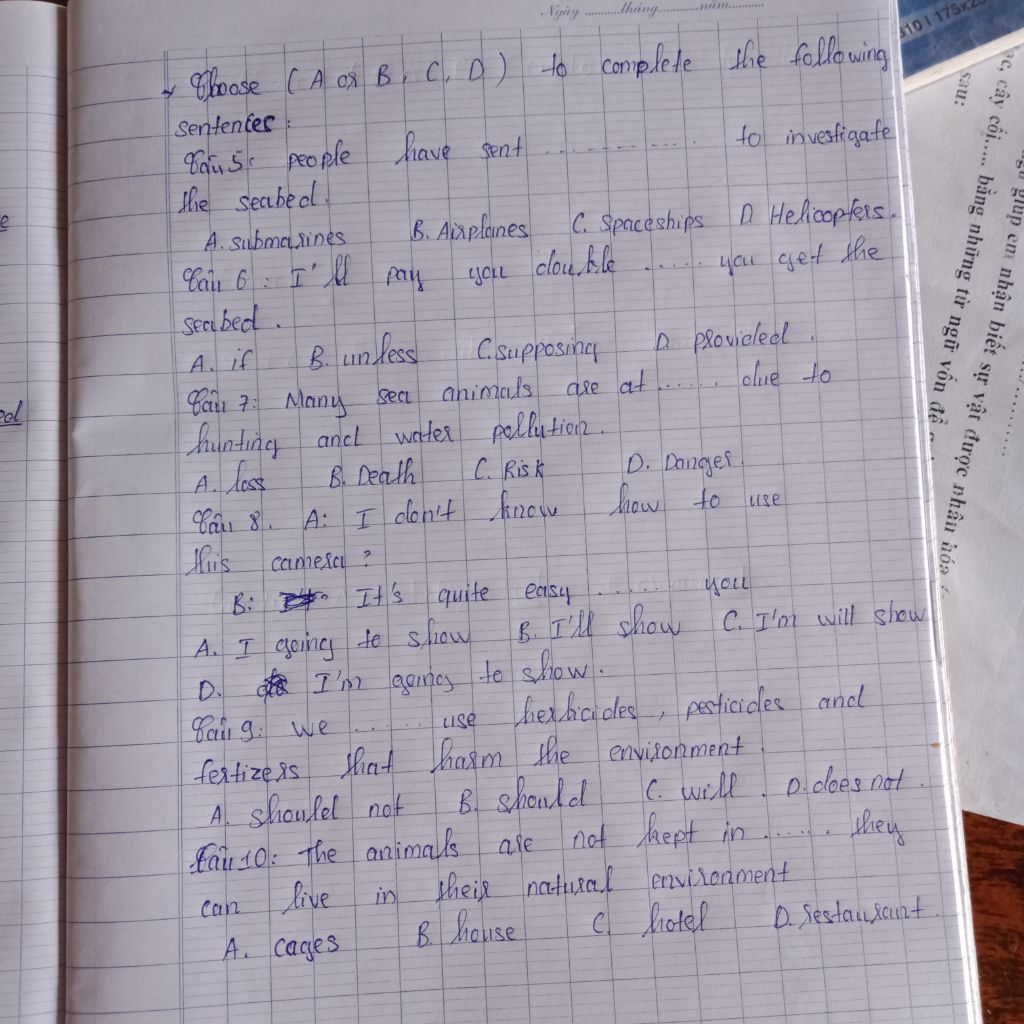 Ngày ..........tháng..........năm..........
Choose (A or B, C, D) to complete the following
sentences:
Câu 5: people have sent .......... to investigate
the seabed.
A. submarines B. Airplanes C. Spaceships D. Helicopters.
Câu 6: I'll pay you double ...... you get the
seabed.
A. if B. unless C. supposing D. provided.
Câu 7: Many sea animals are at ...... due to
hunting and water pollution.
A. loss B. Death C. Risk D. Danger.
Câu 8. A: I don't know how to use
this camera?
B: It's quite easy ...... you
A. I going to show B. I'll show C. I'm will show
D. I'm going to show.
Câu 9: We ...... use herbicides, pesticides and
fertizers that harm the environment.
A. should not B. should C. will. D. does not.
Câu 10: the animals are not kept in ...... they
can live in their natural environment
A. cages B. house C. hotel D. restaurant.
310 | 175x25
cây cối.... bằng những từ ngữ vốn để
sau:
giúp em nhận biết sự vật được nhân hóa